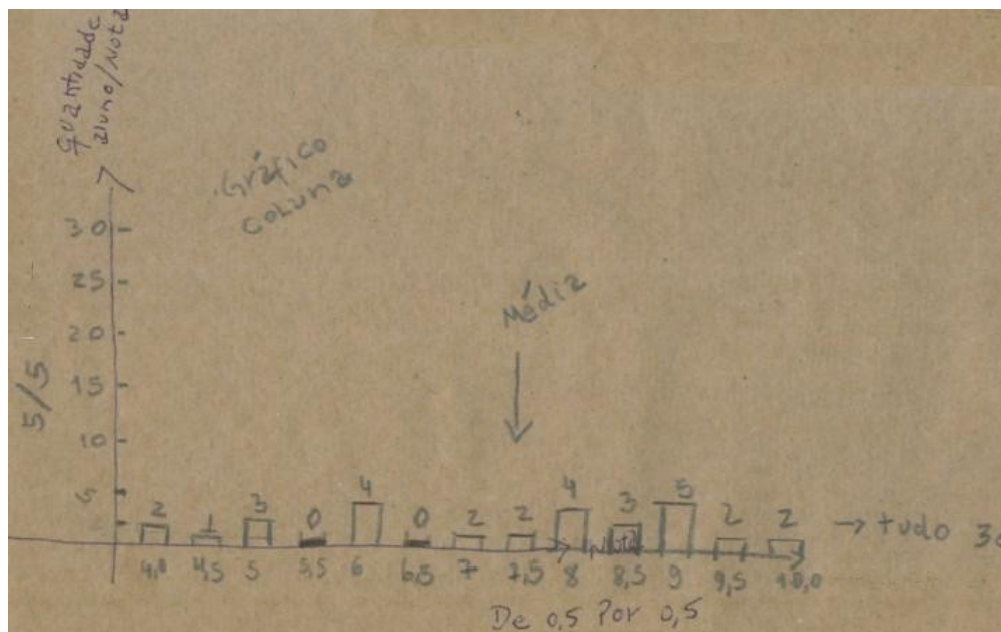 Quantidade
aluno/Nota
Gráfico
Coluna
30
25
20
15
10
5
5/5
Média
2 1 3 0 4 0 2 2 4 3 5 2 2
→ tudo
4,0 4,5 5 5,5 6 6,5 7 7,5 8 8,5 9 9,5 10,0
Nota
De 0,5 Por 0,5